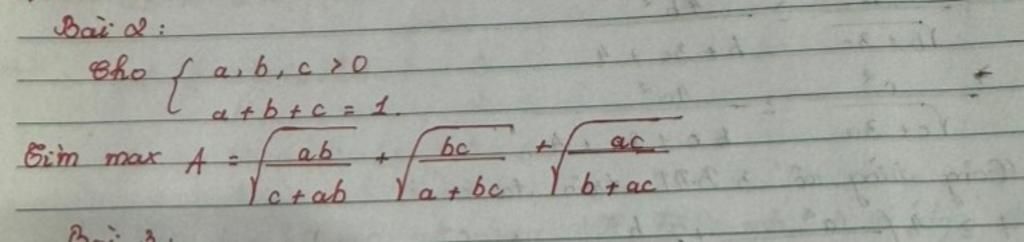 Bài 2:
Cho { a, b, c > 0
a + b + c = 1.
Tìm max A = √(ab/(c + ab)) + √(bc/(a + bc)) + √(ac/(b + ac))